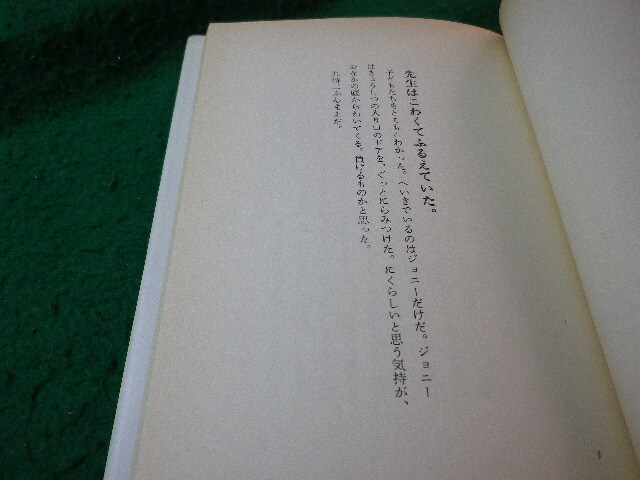 先生はこわくてふるえていた。
子どもたちもそれをわかった。へいきでいるのはジョニーだけだ。ジョニー
はきょうしつの入り口のドアを、ぐっとにらみつけた。にくらしいと思う気持が、
おなかの底からわいてくる。負けるものかと思った。
九時二ふんまえだ。